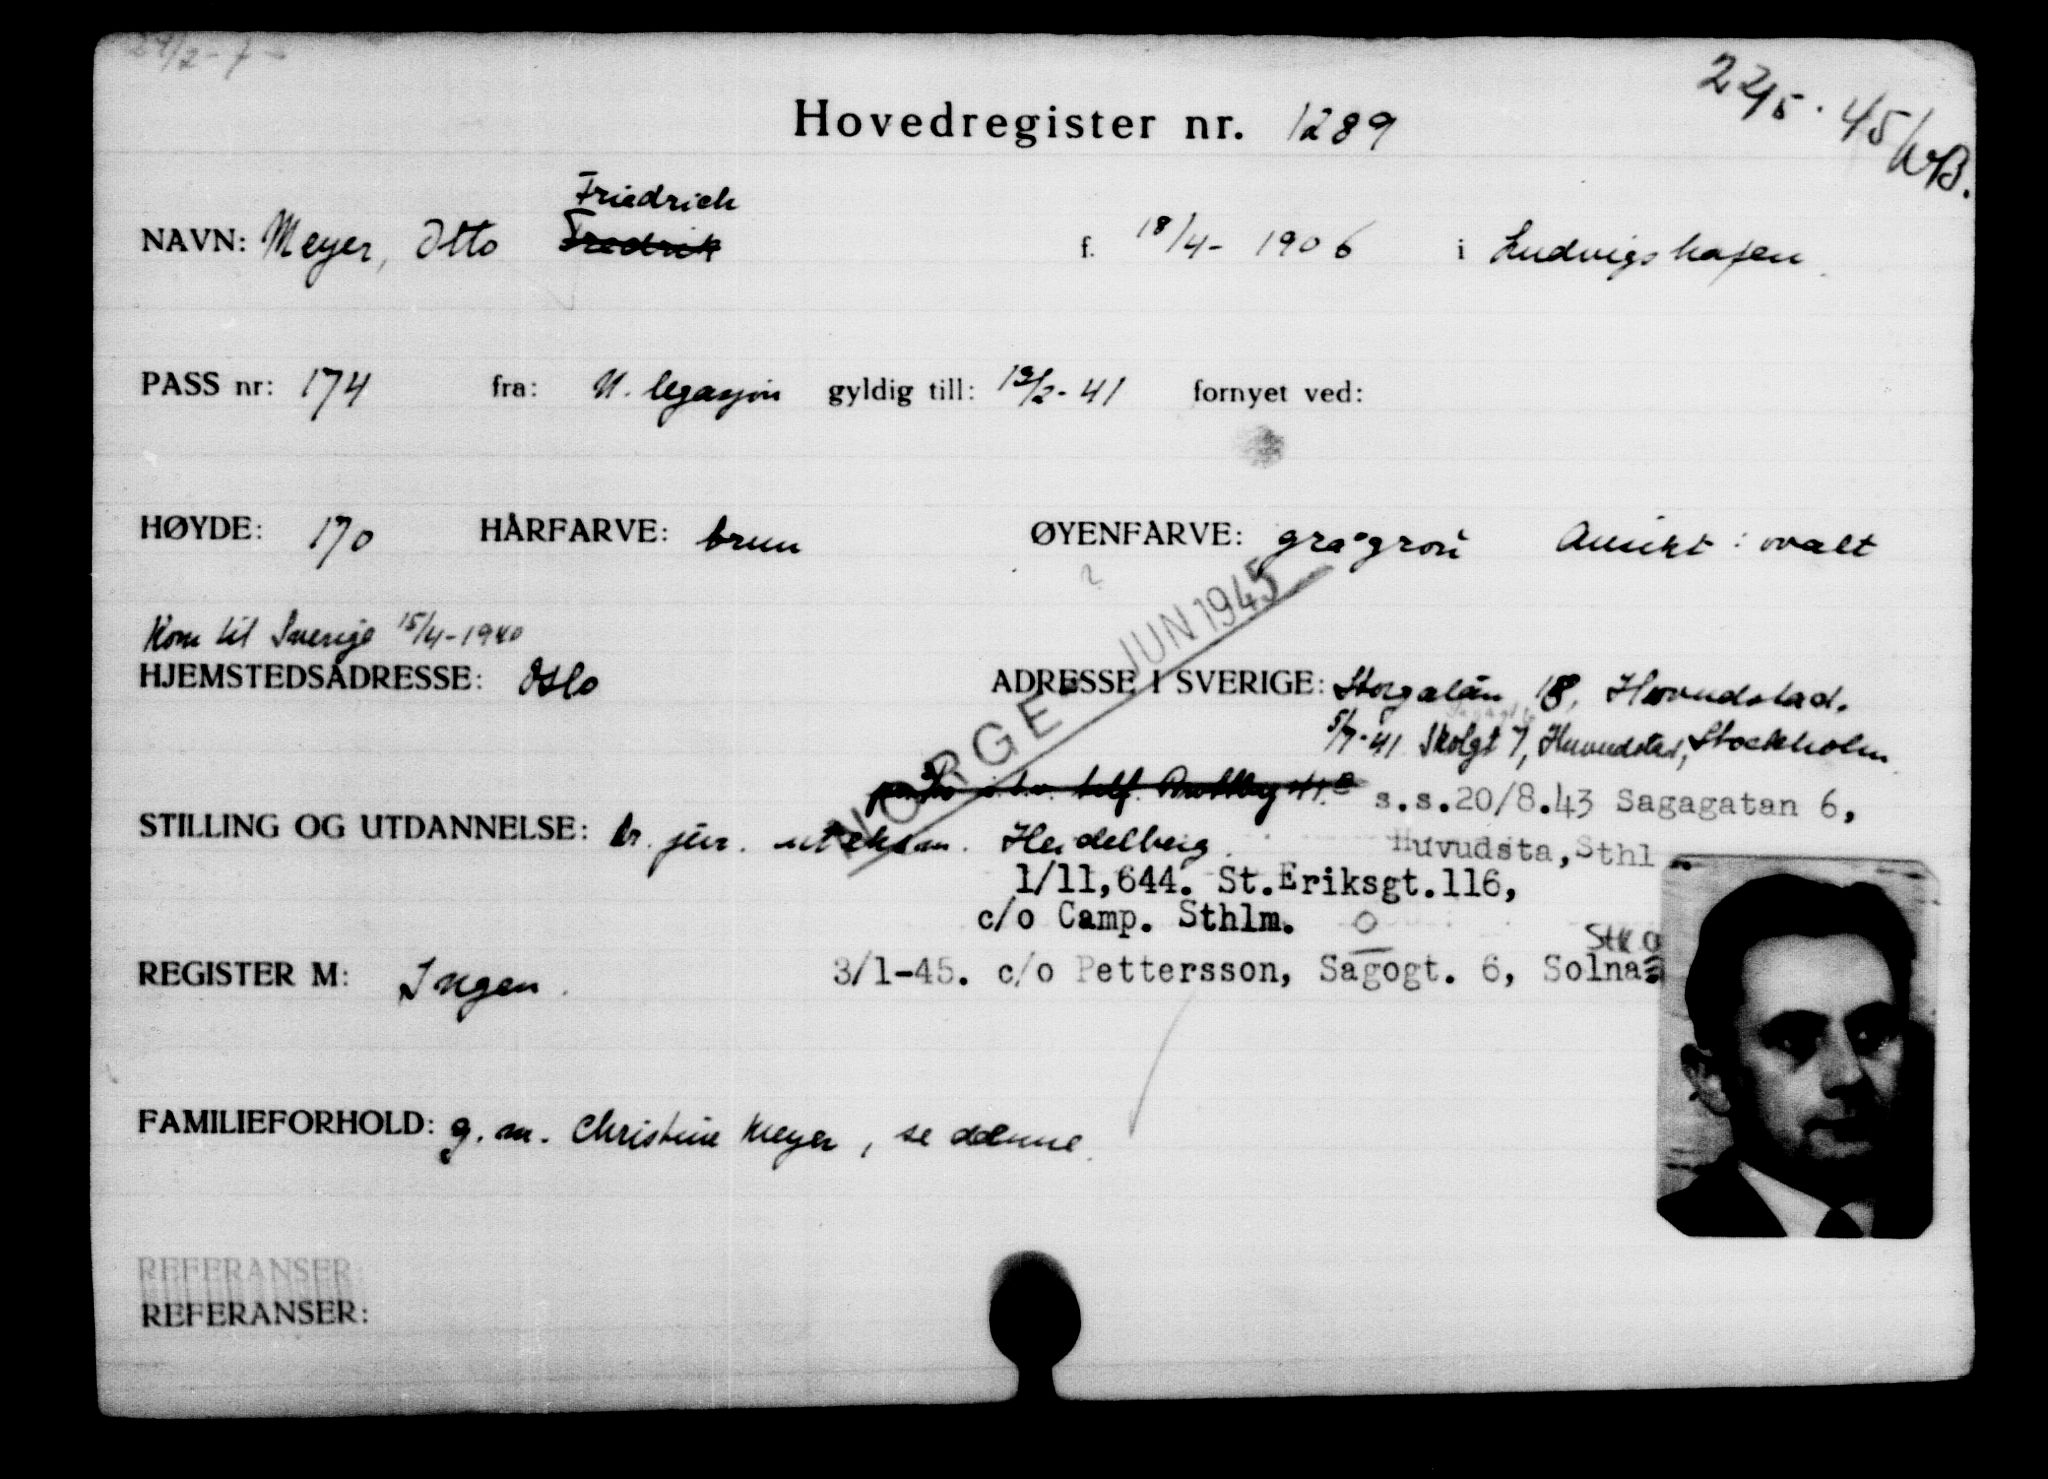 Hovedregister nr. 1289
22/5.45/WB.
Friedrich
NAVN: Meyer, Otto Fredrik f. 18/4-1906 i Ludvigshafen
PASS nr: 174 fra: N. legasjon gyldig till: 12/2-41 fornyet ved:
HØYDE: 170 HÅRFARVE: brun ØYENFARVE: grågrøn Ansikt: ovalt
Kom til Sverige 15/4-1940
NORGE JUN 1945
HJEMSTEDSADRESSE: Oslo ADRESSE I SVERIGE: Storgatan 18, Huvudstad.
5/7-41 Skolgt 7, Huvudstad, Stockholm
s.s.20/8.43 Sagagatan 6,
STILLING OG UTDANNELSE: Dr. jur. uteksam. Heidelberg.
Huvudsta, Sthlm
1/11,644. St.Eriksgt.116,
c/o Camp. Sthlm.
REGISTER M: Ingen. 3/1-45. c/o Pettersson, Sagogt. 6, Solna
FAMILIEFORHOLD: g.m. Christine Meyer, se denne.
REFERANSER:
REFERANSER: